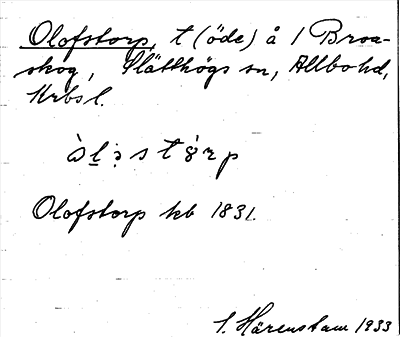 Olofstorp, t (öde) å 1 Broa-
skog, Slätthögs sn, Allbo hd,
Krbs l.
àl̠ɔ̣stɵ̀rp
Olofstorp kb 1831.
S. Härenstam 1933